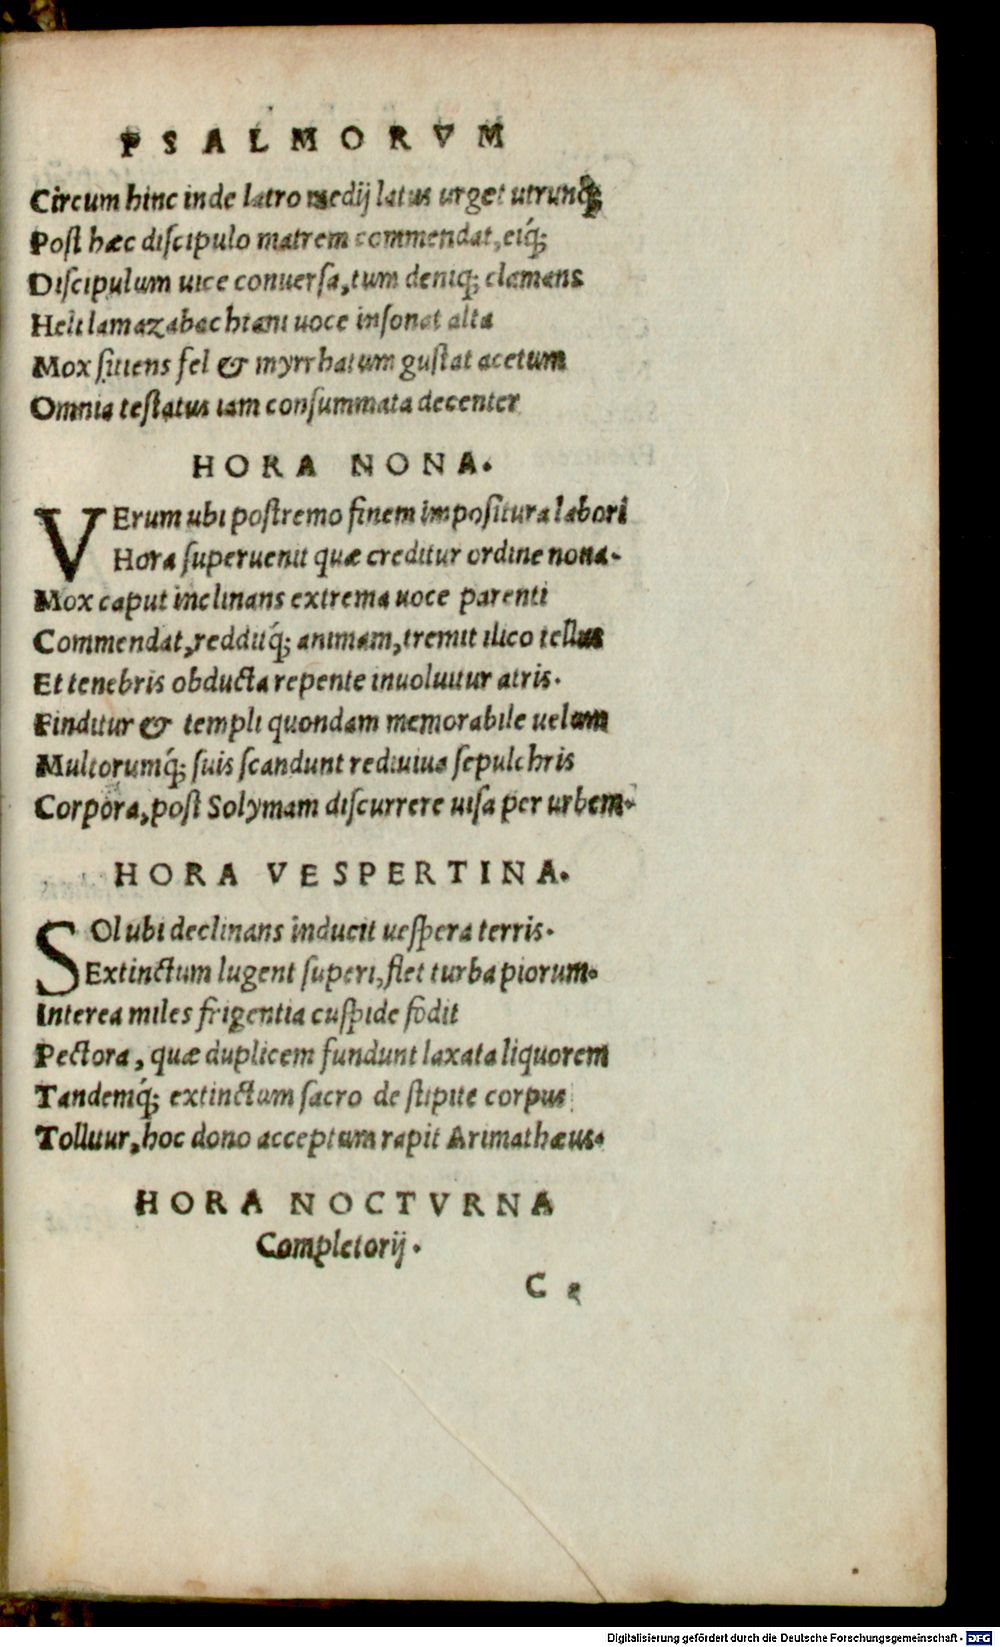 PSALMORVM
Circum hinc inde latro medij latus urget utrunq́;
Post hæc discipulo matrem commendat, eiq́;
Discipulum uice conuersa, tum deniq; clamans
Heli lamazabachtani uoce insonat alta
Mox sitiens fel & myrrhatum gustat acetum
Omnia testatus iam consummata decenter
HORA NONA.
VErum ubi postremo finem impositura labori
Hora superuenit quæ creditur ordine nona.
Mox caput inclinans extrema uoce parenti
Commendat, redditq́; animam, tremit ilico tellus
Et tenebris obducta repente inuoluitur atris.
Finditur & templi quondam memorabile uelum
Multorumq́; suis scandunt rediuiua sepulchris
Corpora, post Solymam discurrere uisa per urbem.
HORA VESPERTINA.
SOl ubi declinans inducit uespera terris.
Extinctum lugent superi, flet turba piorum.
Interea miles frigentia cuspide fodit
Pectora, quæ duplicem fundunt laxata liquorem
Tandemq́; extinctum sacro de stipite corpus
Tollitur, hoc dono acceptum rapit Arimathæus.
HORA NOCTVRNA
Completorij.
C
Digitalisierung gefördert durch die Deutsche Forschungsgemeinschaft - DFG